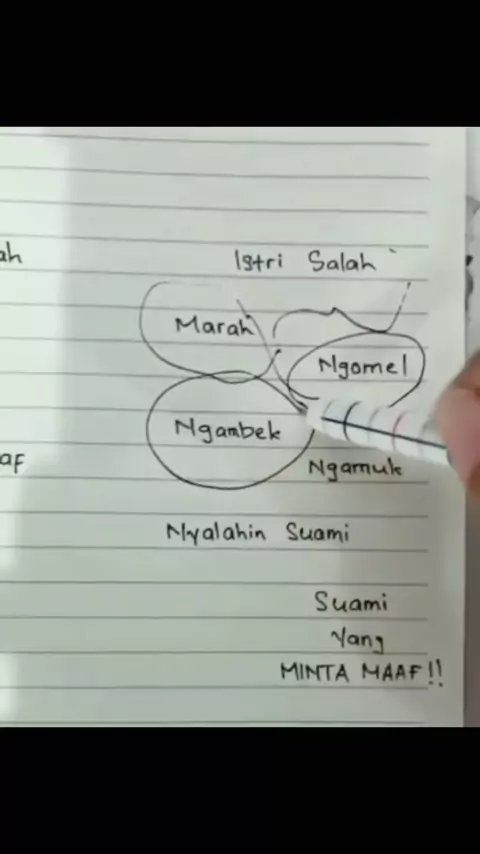 ah
Istri Salah
Marah
Ngomel
Ngambek
af
Ngamuk
Nyalahin Suami
Suami
Yang
MINTA MAAF!!